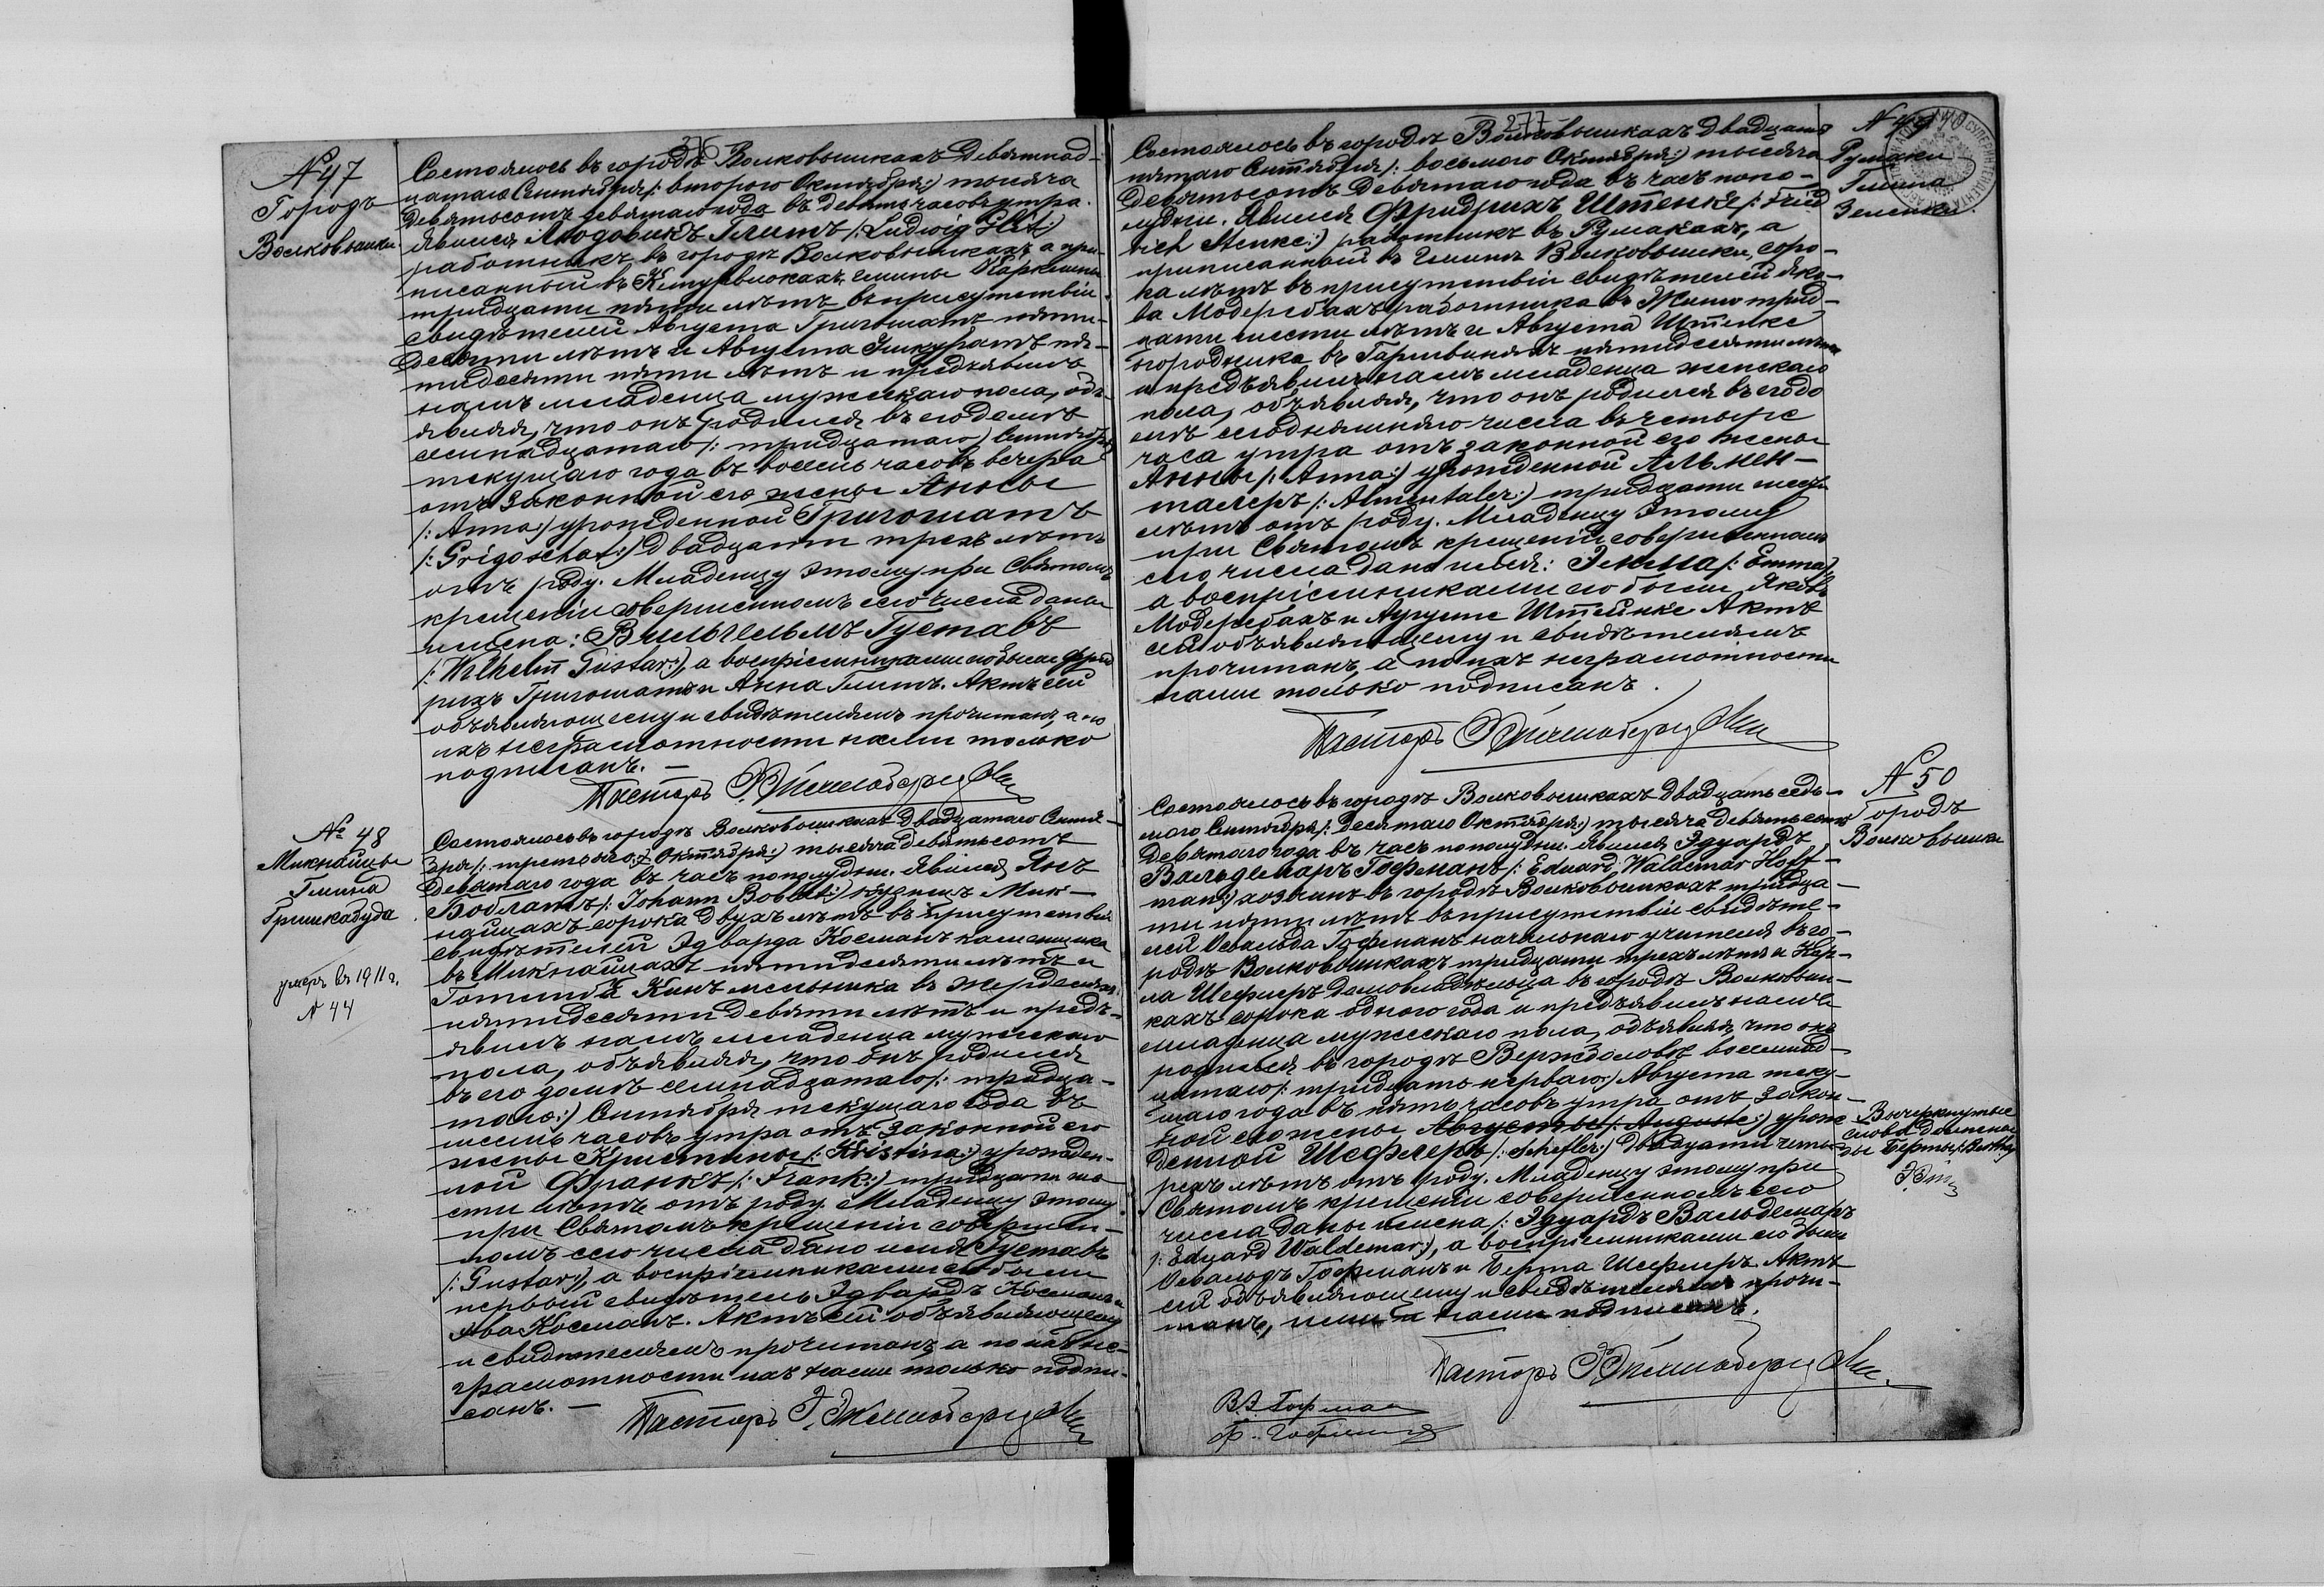 276
№ 47
Городъ
Волковышки
Состоялось въ городѣ Волковышкахъ Девятнад-
цатаго Сентября /: второго Октября:/ тысяча
девятьсотъ девятаго года въ десять часовъ утра.
Явился Людовикъ Глитъ /: Ludwig Glit:/
работникъ въ городѣ Волковышкахъ, а при-
писанный въ гмины
тридцати пяти лѣтъ въ присутствіи
свидѣтелей Августа Григошатъ пяти-
десяти лѣтъ и Августа пя-
тидесяти пяти лѣтъ и предъявилъ
намъ младенца мужескаго пола, объ-
являя, что онъ родился въ его домѣ
семнадцатаго /: тридцатаго:/ Сентября
текущаго года въ восемь часовъ вечера
отъ законной его жены Анны
/: Anna:/ урожденной Григошатъ
/: Grigoschat:/ двадцати трехъ лѣтъ
отъ роду. Младенцу этому при Святомъ
крещеніи совершенномъ сего числа даны
имена: Вильгельмъ Густавъ
/: Wilhelm Gustav:/, а воспріемниками его были Фрид-
рихъ Григошатъ и Анна Глитъ. Актъ сей
объявляющему и свидѣтелямъ прочитанъ, а по
ихъ неграмотности нами только
подписанъ. —
Пасторъ
№ 48
Микнайце
Гмина
Гришкабуда
умеръ въ 1911 г.
№ 44
Состоялось въ городѣ Волковышкахъ Двадцатаго Сентя-
бря /: третьяго Октября:/ тысяча девятьсотъ
девятаго года въ часъ пополудни. Явился Янъ
Боблатъ /: Johann Boblat:/ кузнецъ Мик-
найцахъ сорока двухъ лѣтъ въ присутствіи
свидѣтелей Эдварда Косманъ каменщика
въ Микнайцахъ пятидесяти лѣтъ и
Готлиба Кинъ мельника въ
пятидесяти девяти лѣтъ и предъ-
явилъ намъ младенца мужескаго
пола, объявляя, что онъ родился
въ его домѣ семнадцатаго /: тридца-
таго:/ Сентября текущаго года въ
шесть часовъ утра отъ законной его
жены Кристины /: Kristina:/ урожден-
ной Франкъ /: Frank:/ тридцати ше-
сти лѣтъ отъ роду. Младенцу этому
при Святомъ крещеніи совершен-
номъ сего числа дано имя Густавъ
/: Gustav:/, а воспріемниками его были
первый свидѣтель Эдвардъ Косманъ и
Ева Косманъ. Актъ сей объявляющему
и свидѣтелямъ прочитанъ, а по не-
грамотности ихъ нами только подпи-
санъ. —
Пасторъ
277
Румаки
Гмина
Зеленка.
Состоялось въ городѣ Волковышкахъ двадцать
пятаго Сентября /: восьмого Октября:/ тысяча
девятьсотъ девятаго года въ часъ попо-
лудни. Явился Фридрихъ Штенке /: Fried-
rich Stenke:/ работникъ въ Румакахъ, а
приписанный въ гминѣ Волковышки, соро-
ка лѣтъ въ присутствіи свидѣтелей Яко-
ва Модеребахъ работника въ трид-
цати шести лѣтъ и Августа Штенке
огородника въ пятидесяти лѣтъ
и предъявилъ намъ младенца женскаго
пола, объявляя, что онъ родился въ его до-
мѣ сегодняшняго числа въ четыре
часа утра отъ законной его жены
Анны /: Anna:/ урожденной Альмен-
талеръ /: Almentaler:/ тридцати шести
лѣтъ отъ роду. Младенцу этому
при Святомъ крещеніи совершенномъ
сего числа дано имя: Эмма /: Emma:/,
а воспріемниками его были Яковъ
Модеребахъ и Аугусте Штейнке. Актъ
сей объявляющему и свидѣтелямъ
прочитанъ, а по ихъ неграмотности
нами только подписанъ.
Пасторъ
№ 50
Городъ
Волковышки
Состоялось въ городѣ Волковышкахъ двадцать седь-
мого Сентября /: десятаго Октября:/ тысяча девятьсотъ
девятаго года въ часъ пополудни. Явился Эдуардъ
Вальдемаръ Гофманъ /: Eduard Waldemar Hoff-
man:/ хозяинъ въ городѣ Волковышкахъ тридца-
ти пяти лѣтъ въ присутствіи свидѣте-
лей Освальда Гофманъ начальнаго учителя въ го-
родѣ Волковышкахъ тридцати трехъ лѣтъ и Кар-
ла Шефлеръ домовладѣльца въ городѣ Волковыш-
кахъ сорока одного года и предъявилъ намъ
младенца мужескаго пола, объявляя, что онъ
родился въ городѣ Вержболовѣ восемнад-
цатаго /: тридцать перваго:/ Августа теку-
щаго года въ пять часовъ утра отъ закон-
ной его жены Августы /: Auguste:/ урож-
денной Шефлеръ /: Schefler:/ двадцати четы-
рехъ лѣтъ отъ роду. Младенцу этому при
Святомъ крещеніи совершенномъ сего
числа даны имена /: Эдуардъ Вальдемаръ
/: Eduard Waldemar:/, а воспріемниками его были
Освальдъ Гофманъ и Берта Шефлеръ. Актъ
сей объявляющему и свидѣтелямъ прочи-
танъ, ими и нами подписанъ.
Вычеркнутые
слова
Берты /: Bertha:/
Пасторъ
В.Э. Гофман